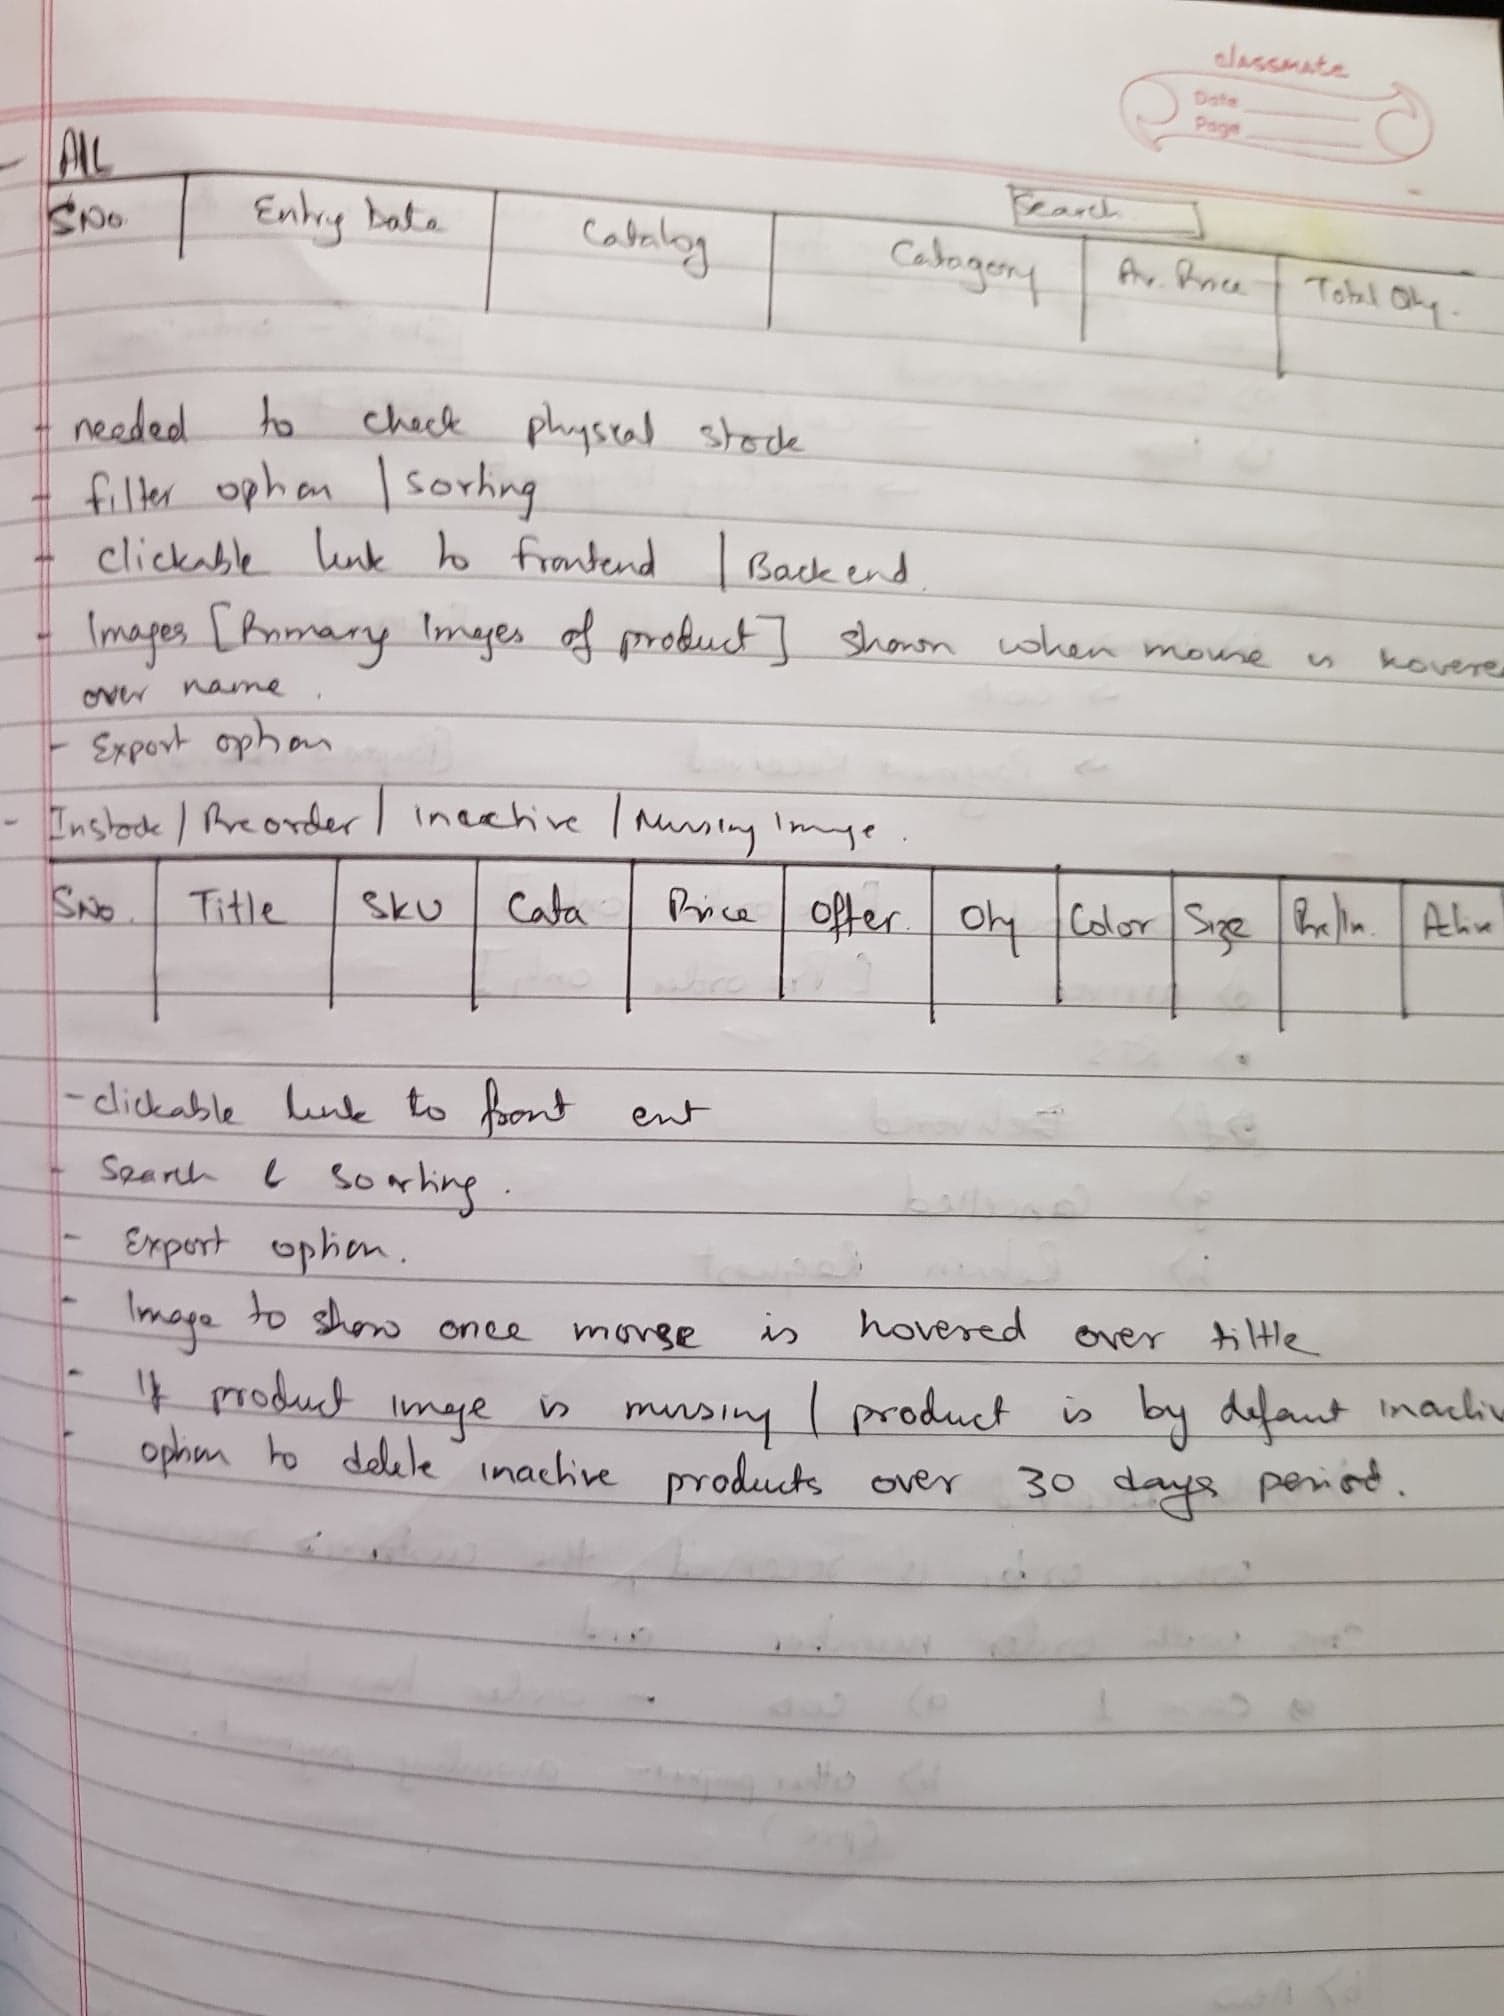 classmate
Date
Page
- All
Search
SNo. | Entry Date | Catalog | Catagory | Av. Price | Total Qty.
- needed to check physical stock
- filter option / Sorting
- clickable link to frontend / Backend.
- Images [Primary Images of product] shown when mouse is hovere
over name.
- Export option
- Instock / Preorder / inactive / Missing Image.
SNo. | Title | SKU | Cata | Price | Offer. | Qty | Color | Size | Pre/In. | Ative
- clickable link to front ent
- Search & soarting.
- Export option.
- Image to show once mouse is hovered over tiltle
- If product image is missing / product is by defaut inactiv
- option to delete inactive products over 30 days period.